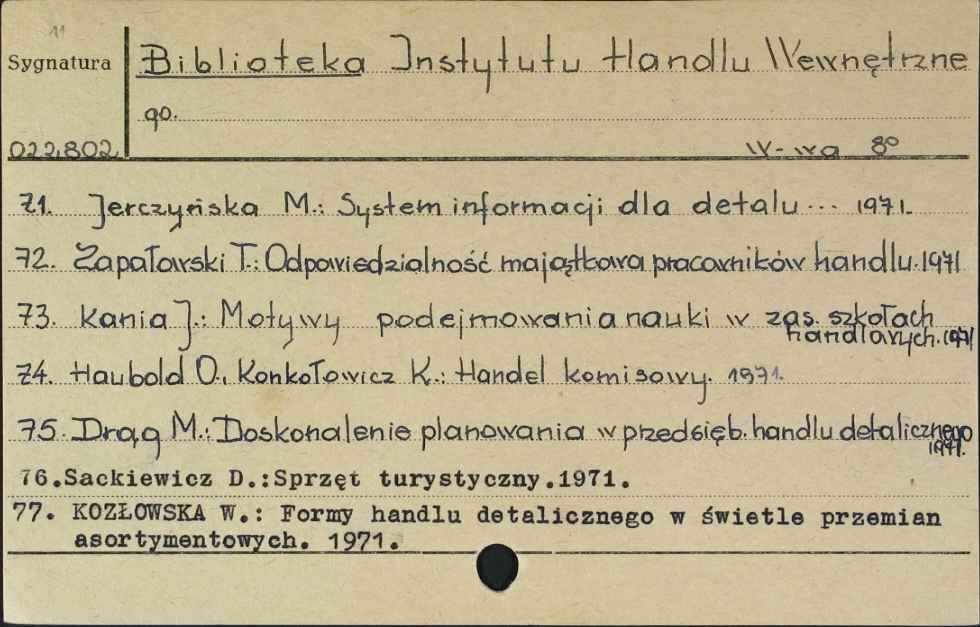 11
Sygnatura
Biblioteka Instytutu Handlu Wewnętrzne
go.
022,802
W-wa 8º
71. Jerczyńska M.: System informacji dla detalu... 1971.
72. Zapaławski T.: Odpowiedzialność majątkowa pracowników handlu. 1971
73. Kania J.: Motywy podejmowania nauki w zas. szkołach
handlowych. 1971
74. Haubold O., Konkołowicz K.: Handel komisowy. 1971.
75. Drąg M.: Doskonalenie planowania w przedsięb. handlu detalicznego
1971.
76.Sackiewicz D.:Sprzęt turystyczny.1971.
77. KOZŁOWSKA W.: Formy handlu detalicznego w świetle przemian
asortymentowych. 1971.